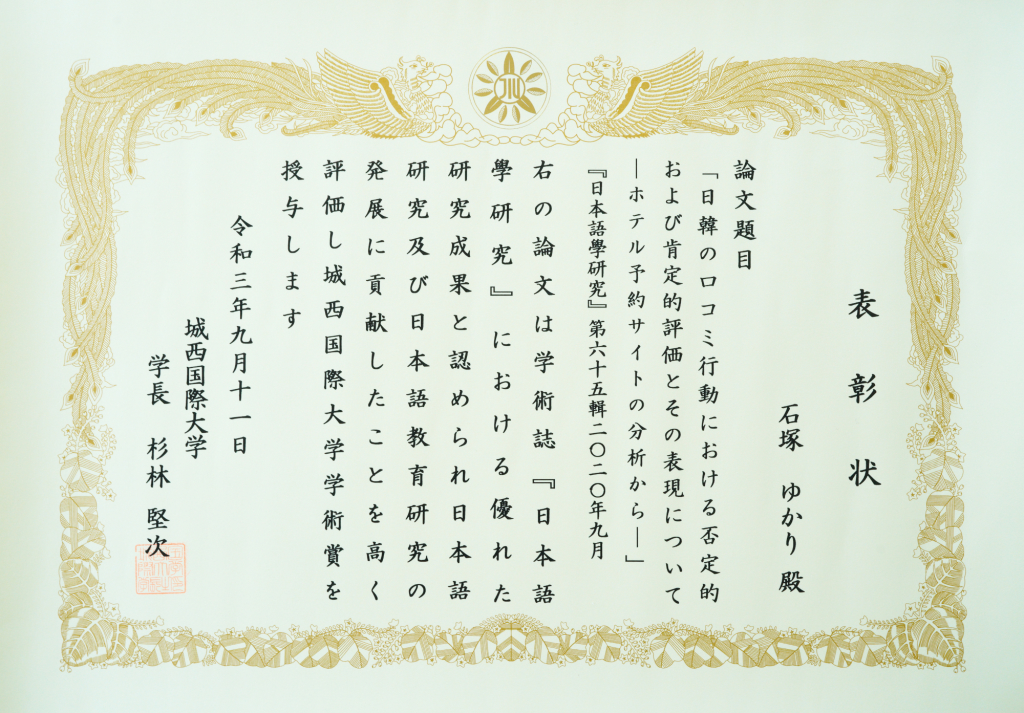 表彰状
石塚 ゆかり 殿
論文題目
「日韓の口コミ行動における否定的
および肯定的評価とその表現について
―ホテル予約サイトの分析から―」
『日本語學研究』第六十五輯二〇二〇年九月
右の論文は学術誌『日本語
學研究』における優れた
研究成果と認められ日本語
研究及び日本語教育研究の
発展に貢献したことを高く
評価し城西国際大学学術賞を
授与します
令和三年九月十一日
城西国際大学
学長 杉林 堅次